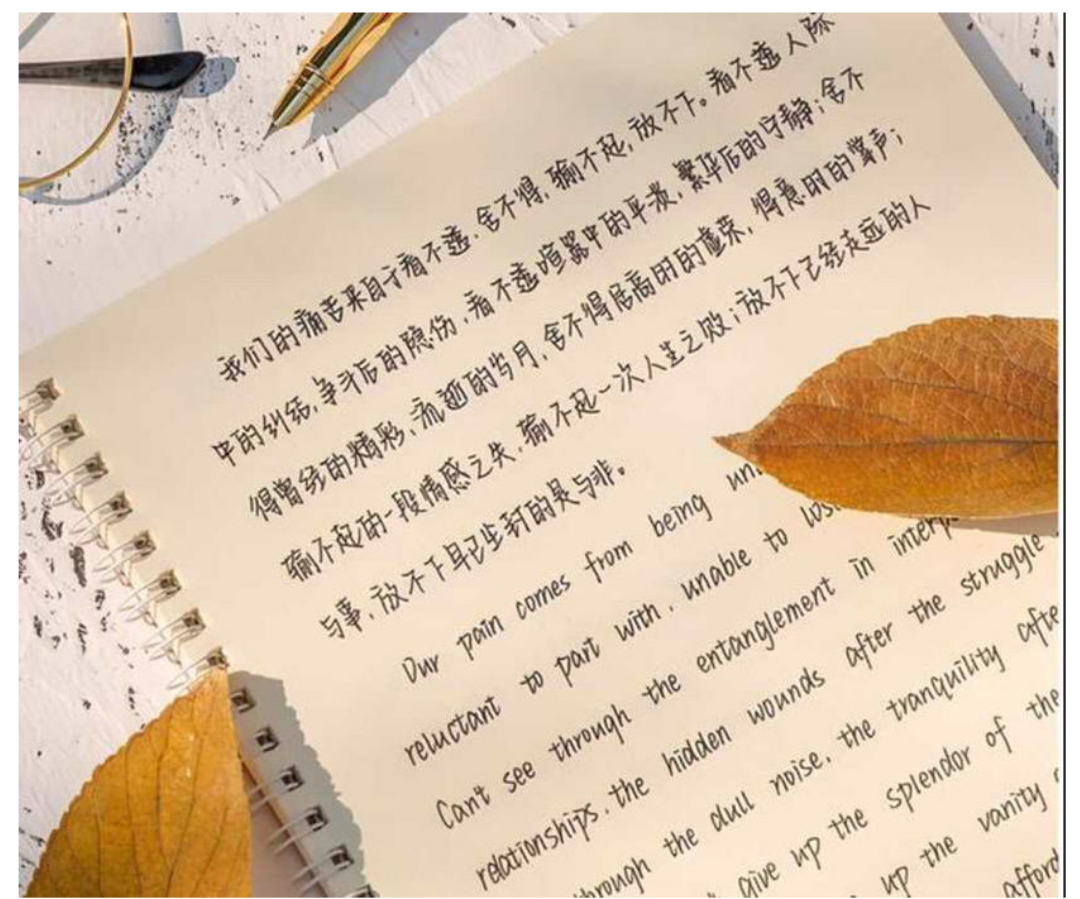 我们的痛苦来自于看不透、舍不得，输不起，放不下。看不透人际
中的纠结，争斗后的隐伤，看不透喧嚣中的平淡，繁华后的宁静；舍不
得曾经的精彩，流逝的岁月，舍不得居高时的虚荣，得意时的掌声；
输不起的一段情感之失，输不起一次人生之败；放不下已经走远的人
与事，放不下早已尘封的是与非。
Our pain comes from being
reluctant to part with, unable to
Can't see through the entanglement in
relationships, the hidden wounds after the struggle
the dull noise, the tranquility
give up the splendor of the
up the vanity